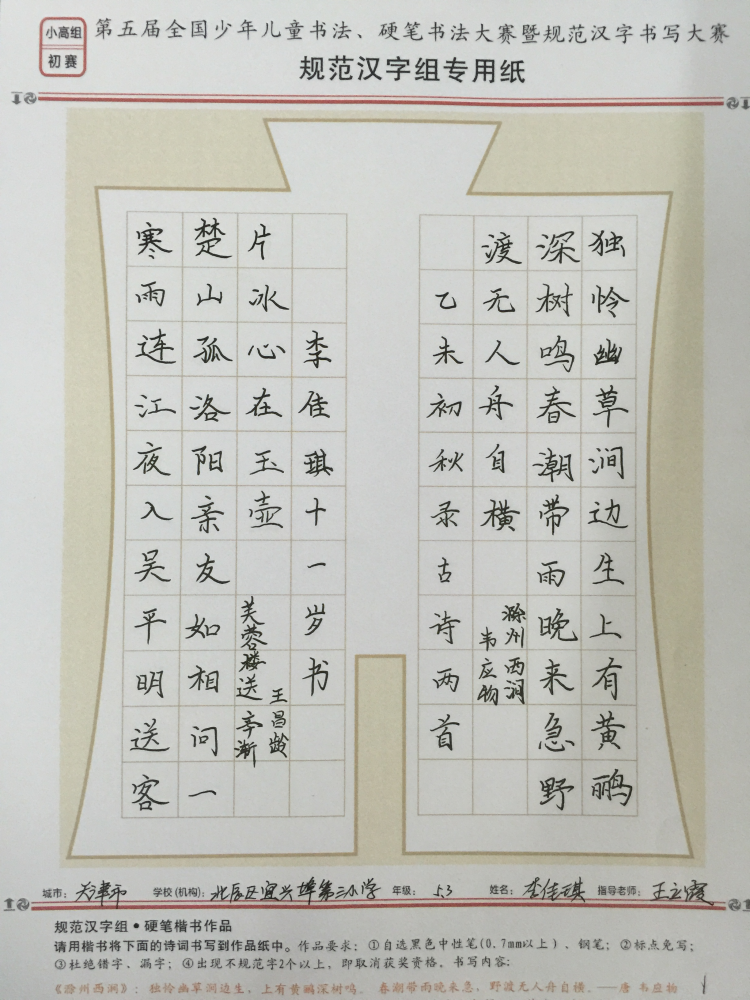 小高组
初赛
第五届全国少年儿童书法、硬笔书法大赛暨规范汉字书写大赛
规范汉字组专用纸
独怜幽草涧边生上有黄鹂
深树鸣春潮带雨晚来急野
渡无人舟自横
滁州西涧
韦应物
乙未初秋录古诗两首
寒雨连江夜入吴平明送客
楚山孤洛阳亲友如相问一
片冰心在玉壶
芙蓉楼送辛渐
王昌龄
李佳琪十一岁书
城市：天津市 学校(机构)：北辰区宜兴埠第三小学 年级：5.3 姓名：李佳琪 指导老师：王立霞
规范汉字组·硬笔楷书作品
请用楷书将下面的诗词书写到作品纸中。作品要求：①自选黑色中性笔(0.7mm以上)、钢笔；②标点免写；
③杜绝错字、漏字；④出现不规范字2个以上，即取消获奖资格。书写内容：
《滁州西涧》：独怜幽草涧边生，上有黄鹂深树鸣。春潮带雨晚来急，野渡无人舟自横。——唐 韦应物